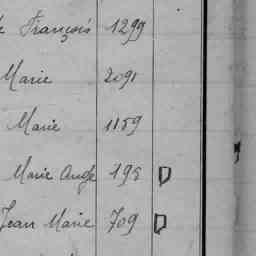 François 1299
Marie 2091
Marie 1159
Marie Ange 195 D
Jean Marie 709 D